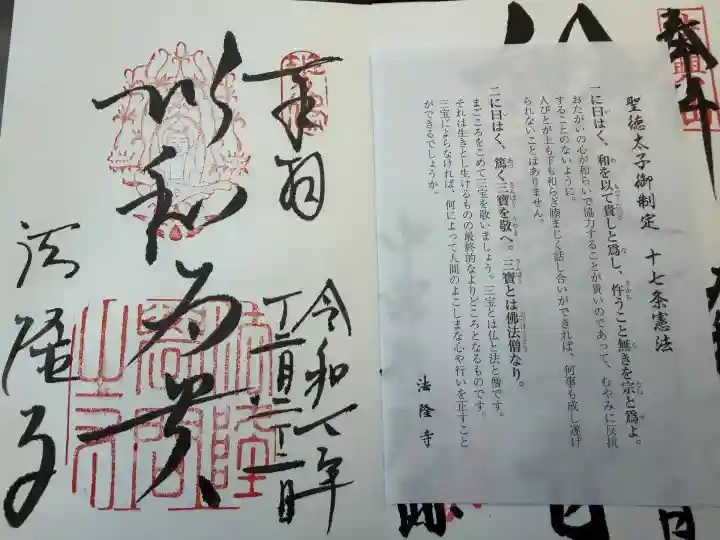 奉拝
聖徳太子御制定　十七条憲法
一に曰はく、和を以て貴しと爲し、忤うこと無きを宗と爲よ。
おたがいの心が和らいで協力することが貴いのであって、むやみに反抗
することのないように。
人びとが上も下も和らぎ睦まじく話し合いができれば、何事も成し遂げ
られないことはありません。
二に曰はく、篤く三寶を敬へ。三寶とは佛法僧なり。
まごころをこめて三宝を敬いましょう。三宝とは仏と法と僧です。
それは生きとし生けるものの最終的なよりどころとなるものです。
三宝によらなければ、何によって人間のよこしまな心や行いを正すこと
ができるでしょうか。
法隆寺
奉拝
令和 年
以和為貴
法隆寺